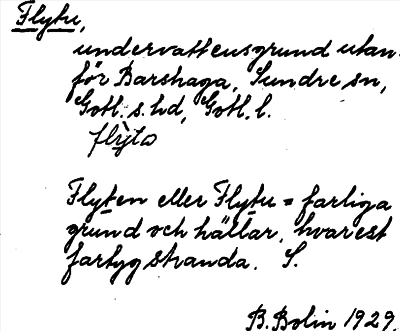 Flytu,
undervattensgrund utan-
för Barshaga, Sundre sn,
Gotl. s. hd, Gotl. l.
flỳto
Flyten eller Flytu = farliga
grund och hällar, hvarest
fartyg stranda. S.
B. Bolin 1929.